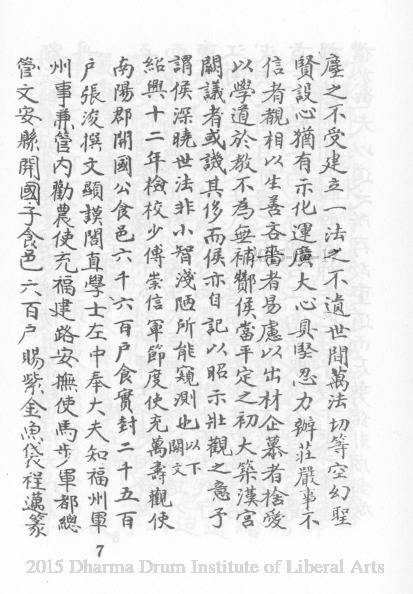 塵之不受建立一法之不遺世間萬法切等空幻聖
賢設心猶有示化運廣大心具堅忍力辦莊嚴事不
信者覩相以生善吝嗇者易慮以出材企慕者捨愛
以學道於教不為無補酇侯當平定之初大築漢宮
闕議者或譏其侈而侯亦自記以昭示壯觀之意予
謂侯深曉世法非小智淺陋所能窺測也以下闕文
紹興十二年檢校少傅崇信軍節度使充萬壽觀使
南陽郡開國公食邑六千六百戶食實封二千五百
戶張浚撰文顯謨閣直學士左中奉大夫知福州軍
州事兼管内勸農使充福建路安撫使馬步軍都總
管文安縣開國子食邑六百戶賜紫金魚袋程邁篆
7
2015 Dharma Drum Institute of Liberal Arts